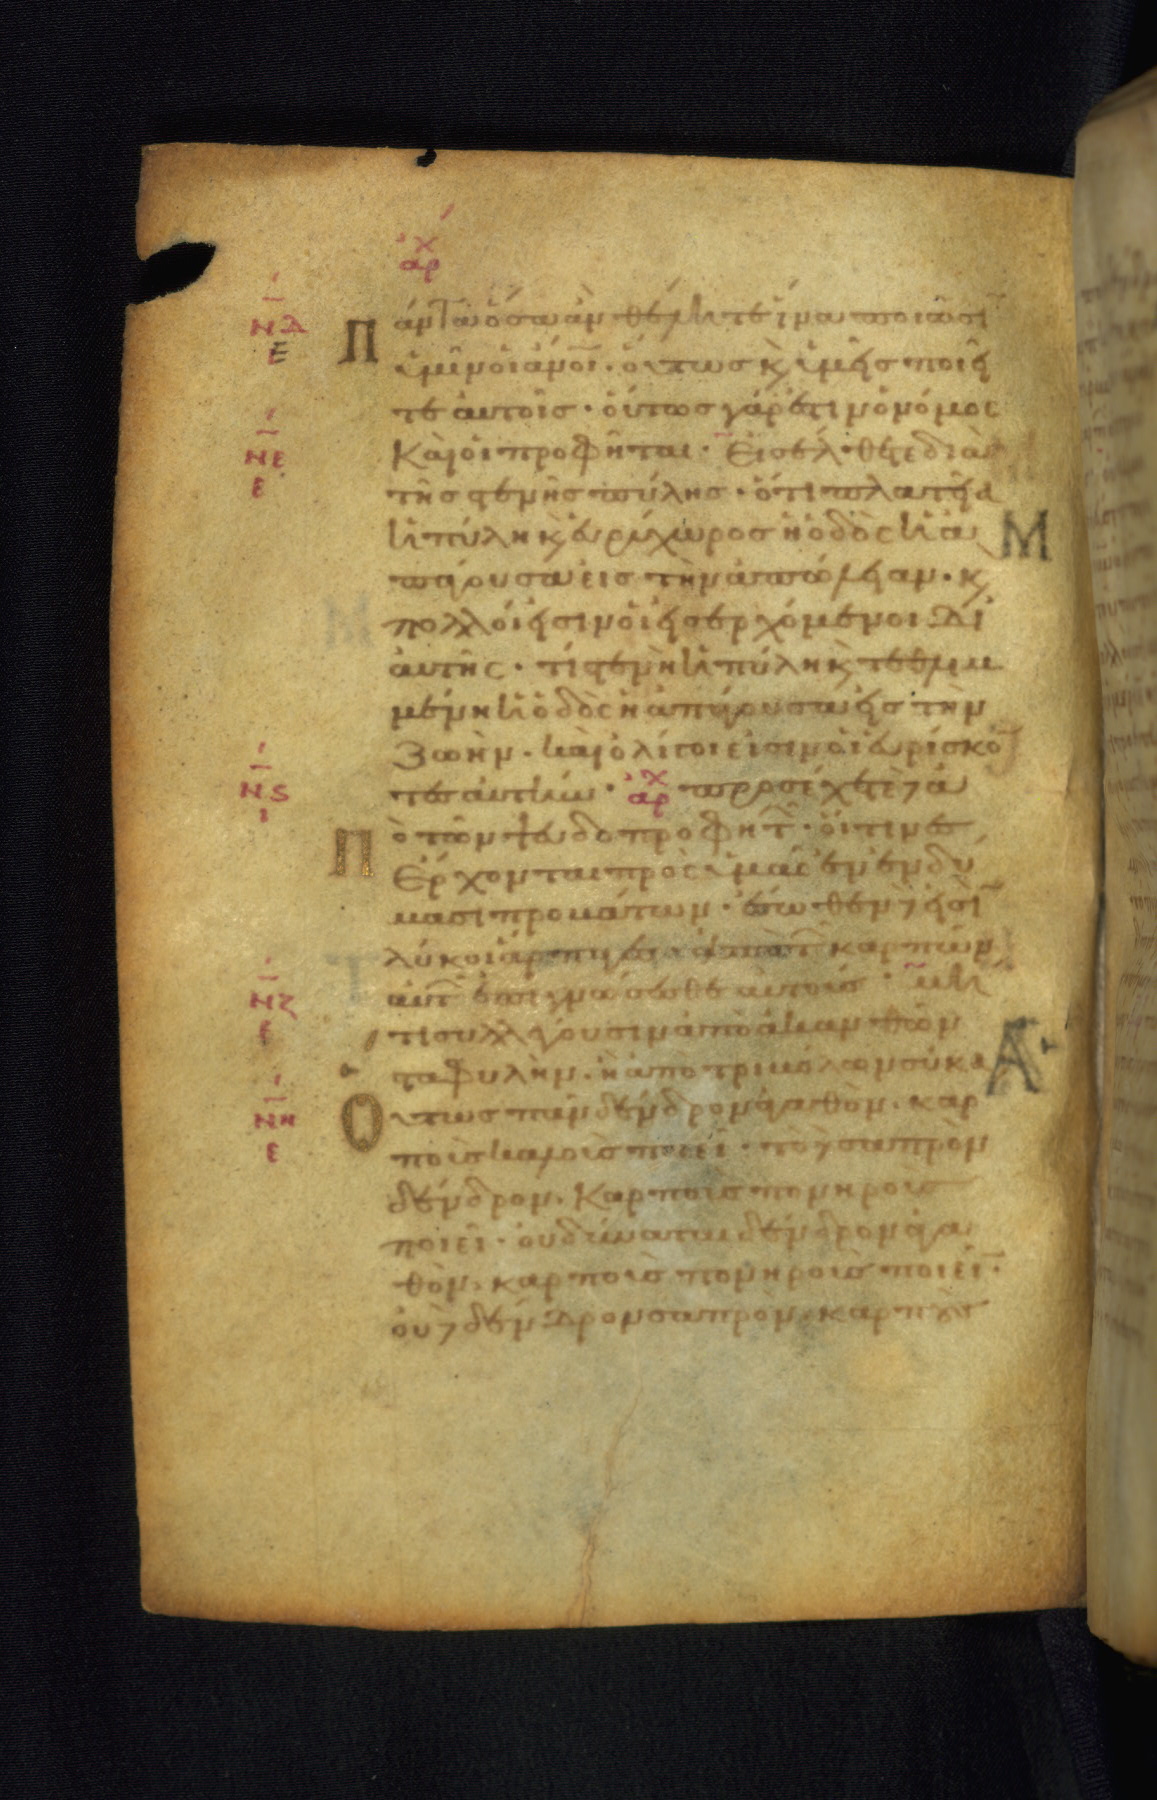 ἀρχ
ΝΔ
Ε
Πάντα ὅσα ἂν θέλητε ἵνα ποιῶσι
ὑμῖν οἱ ἄνοι· οὕτως κ ὑμεῖς ποιεῖ
τε αὐτοῖς· οὗτος γάρ ἐστιν ὁ νόμος
ΝΕ
Ε
Καὶ οἱ προφῆται· Εἰσέλθετε διὰ
τῆς στενῆς πύλης· ὅτι πλατεῖα
ἡ πύλη κ εὐρύχωρος ἡ ὁδὸς ἡ ἀ
Μ
πάγουσα εἰς τὴν ἀπώλειαν· κ
πολλοί εἰσιν οἱ εἰσερχόμενοι δι
αὐτῆς· τί στενὴ ἡ πύλη κ τεθλιμ
μένη ἡ ὁδὸς ἡ ἀπάγουσα εἰς τὴν
ζωήν· καὶ ὀλίγοι εἰσιν οἱ εὑρίσκο
Νϛ
Ι
τες αὐτήν· ἀρχ προσέχετε δὲ ἀ
Πὸ τῶν ψευδοπροφητ· οἵτινες
Ἔρχονται πρὸς ὑμᾶς ἐν ἐνδύ
μασι προβάτων· ἔσωθεν δέ εἰσι
λύκοι ἅρπαγες· ἀπὸ τ καρπῶν
ΝΖ
Ε
αὐτ ἐπιγνώσεσθε αὐτούς· μή
τι συλλέγουσιν ἀπὸ ἀκανθῶν
σταφυλήν· ἢ ἀπὸ τριβόλων σύκα
Α
ΝΗ
Ε
Οὕτως πᾶν δένδρον ἀγαθόν· καρ
ποὺς καλοὺς ποιεῖ· τὸ δὲ σαπρὸν
δένδρον· καρποὺς πονηροὺς
ποιεῖ· οὐ δύναται δένδρον ἀγα
θόν· καρποὺς πονηροὺς ποιεῖ·
οὐδὲ δένδρον σαπρόν· καρποὺς